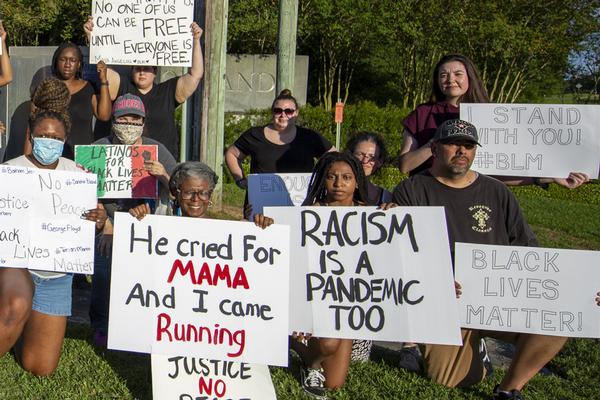 NO ONE OF US
CAN BE FREE
UNTIL EVERYONE IS
FREE
MAYA ANGELOU
LATINOS
FOR
BLACK LIVES
MATTER
I STAND
WITH YOU!
#BLM
No
Peace
#GeorgeFloyd
Black Lives
Matter
He cried For
MAMA
And I came
Running
JUSTICE
NO
RACISM
IS A
PANDEMIC
TOO
BLACK
LIVES
MATTER!